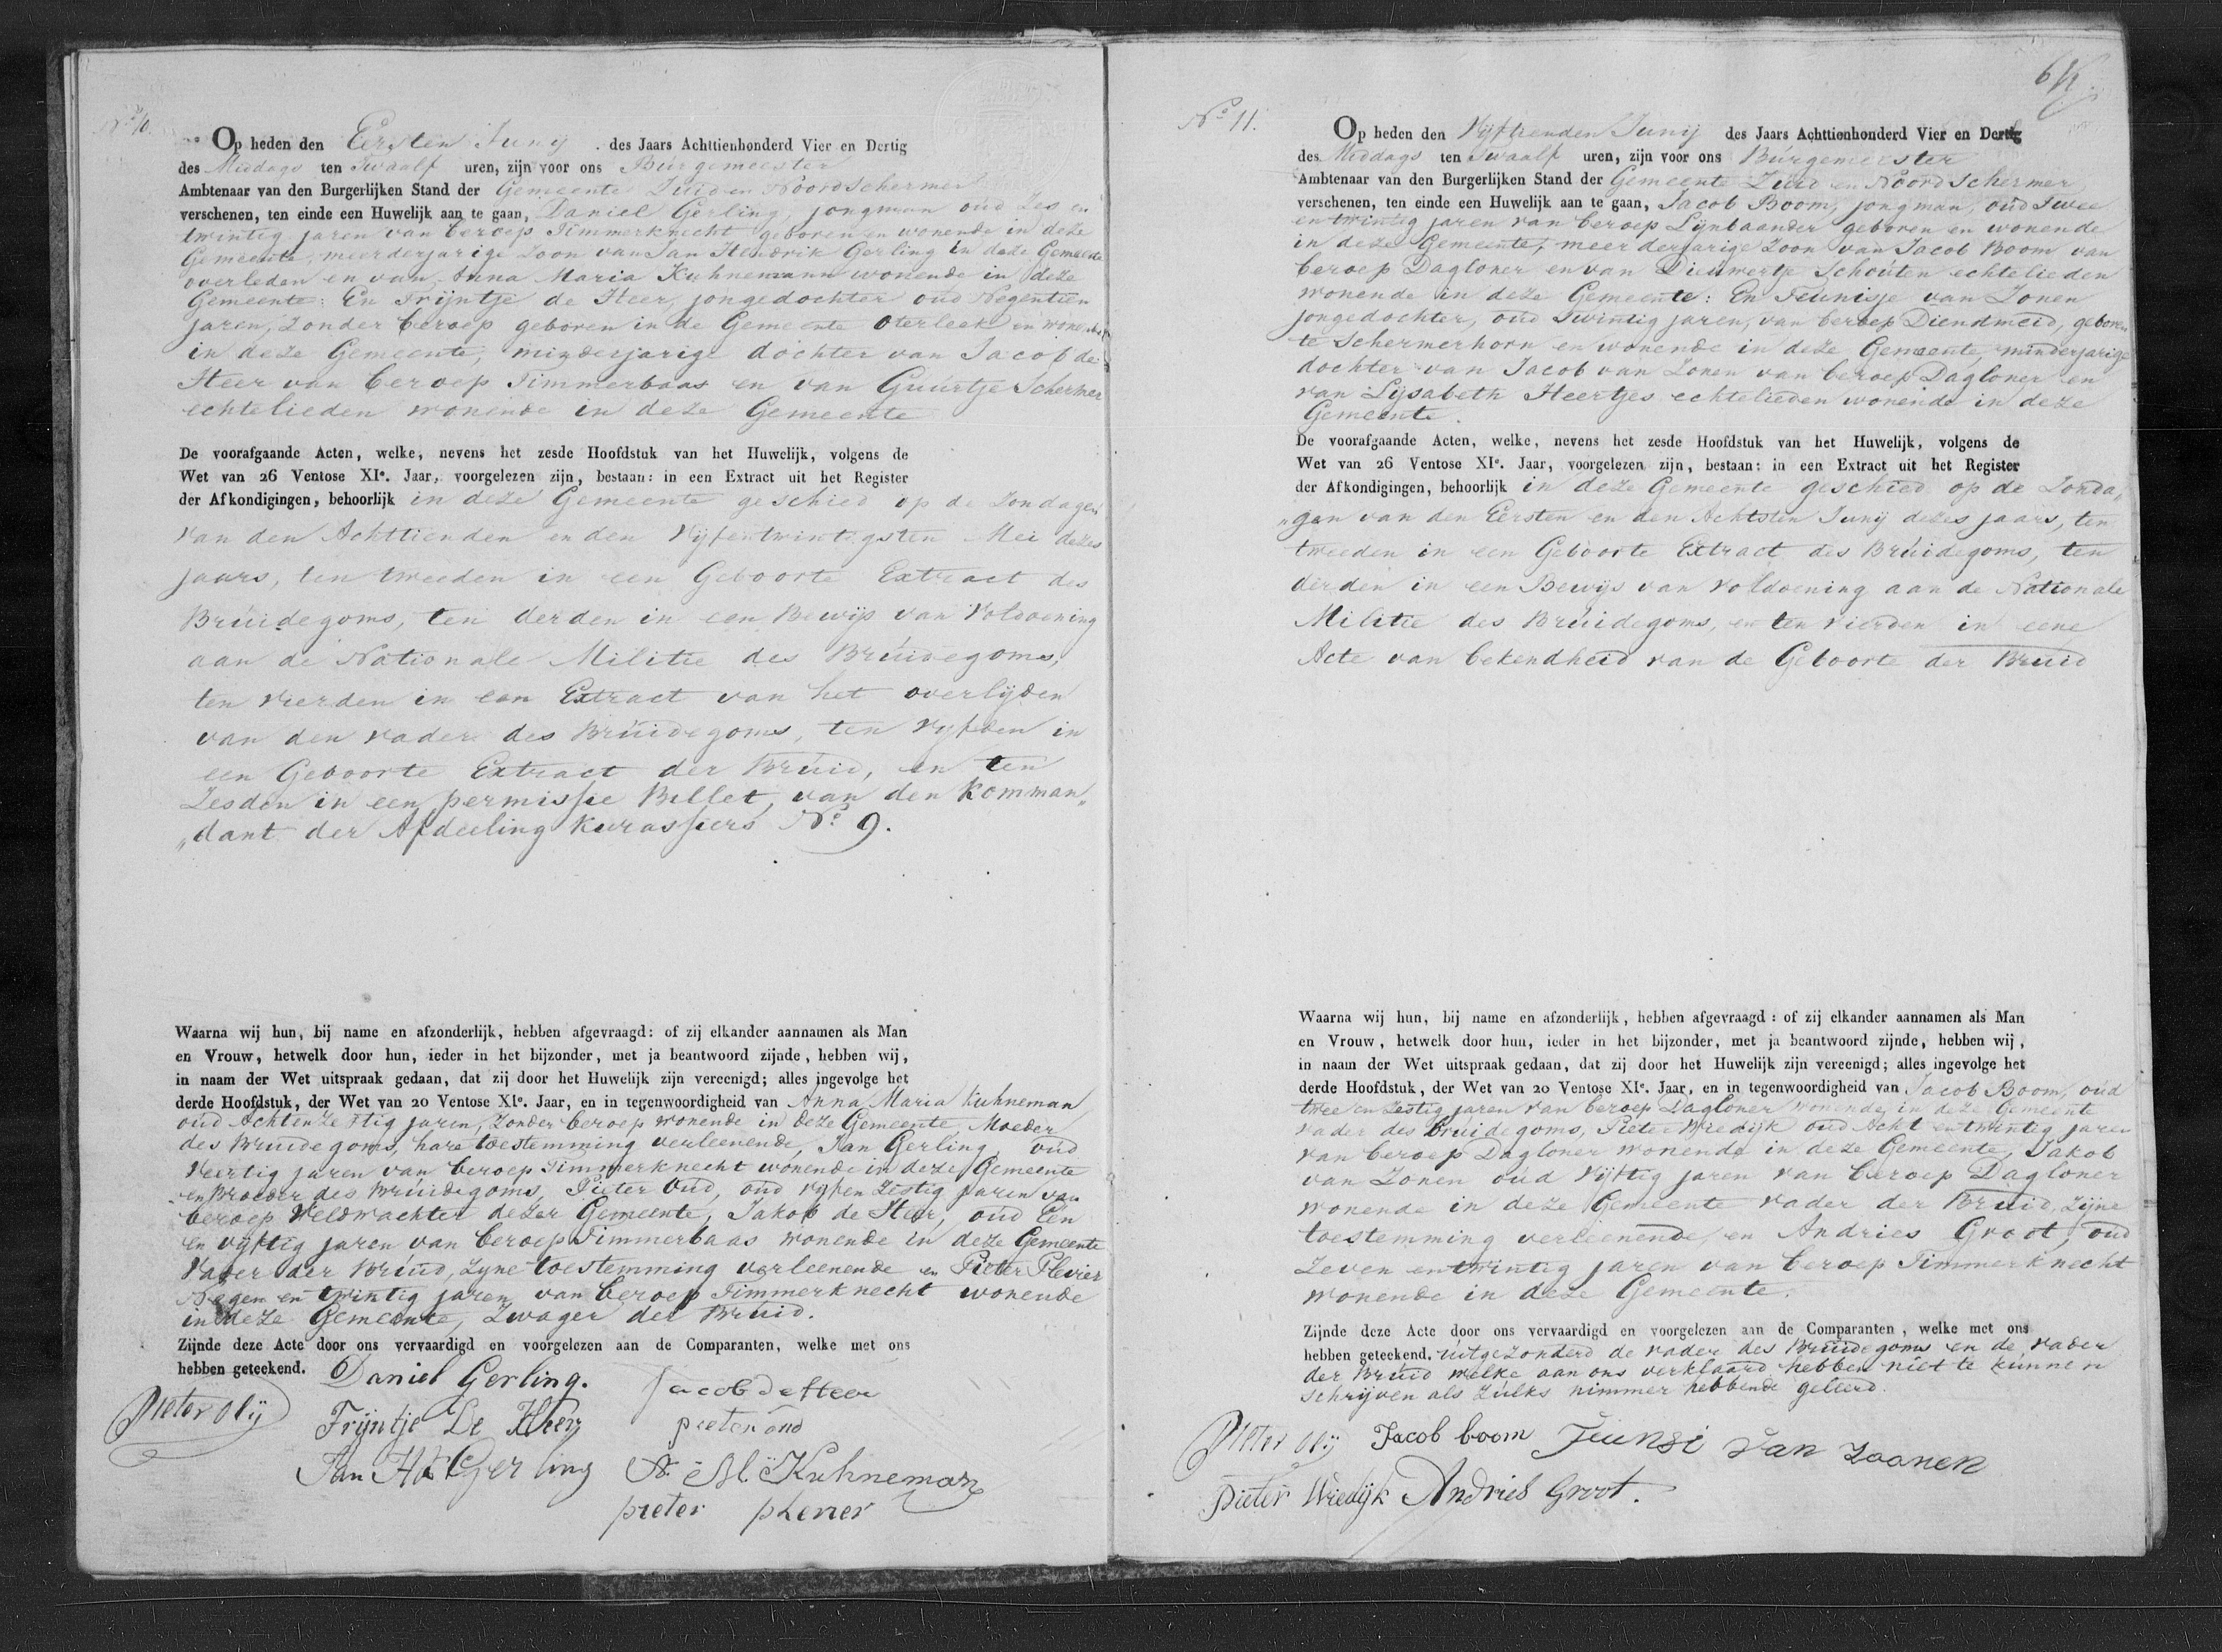 No. 10.
Op heden den Eersten Junij des Jaars Achttienhonderd Vier en Dertig
des Middags ten Twaalf uren, zijn voor ons Burgemeester
Ambtenaar van den Burgerlijken Stand der Gemeente Zuid en Noordschermer
verschenen, ten einde een Huwelijk aan te gaan, Daniel Gerling, jongman oud Zes en
twintig jaren van beroep Timmerknecht geboren en wonende in deze
Gemeente, meerderjarige Zoon van Jan Hendrik Gerling in deze Gemeente
overleden en van Anna Maria Kuhnemann wonende in deze
Gemeente: En Trijntje de Heer, jongedochter oud Negentien
jaren, Zonder beroep geboren in de Gemeente Oterleek en wonende
in deze Gemeente, minderjarige dochter van Jacob de
Heer van beroep Timmerbaas en van Guurtje Schermer
echtelieden wonende in deze Gemeente
De voorafgaande Acten, welke, nevens het zesde Hoofdstuk van het Huwelijk, volgens de
Wet van 26 Ventose XIe. Jaar, voorgelezen zijn, bestaan: in een Extract uit het Register
der Afkondigingen, behoorlijk in deze Gemeente geschied op de Zondagen
van den Achttienden en den Vijfentwintigsten Mei dezes
jaars, ten tweeden in een Geboorte Extract des
Bruidegoms, ten derden in een Bewijs van Voldoening
aan de Nationale Militie des Bruidegoms,
ten vierden in een Extract van het overlijden
van den vader des Bruidegoms, ten vyfden in
een Geboorte Extract der Bruid, en ten
Zesden in een permissie Billet, van den Komman„
„dant der Afdeeling Kurassiers No. 9.
Waarna wij hun, bij name en afzonderlijk, hebben afgevraagd: of zij elkander aannamen als Man
en Vrouw, hetwelk door hun, ieder in het bijzonder, met ja beantwoord zijnde, hebben wij,
in naam der Wet uitspraak gedaan, dat zij door het Huwelijk zijn vereenigd; alles ingevolge het
derde Hoofdstuk, der Wet van 20 Ventose XIe. Jaar, en in tegenwoordigheid van Anna Maria Kuhneman
oud Achtenzestig jaren, Zonder beroep wonende in deze Gemeente, Moeder
des Bruidegoms, hare toestemming verleenende, Jan Gerling oud
Veertig jaren van beroep Timmerknecht wonende in deze Gemeente
en Broeder des Bruidegoms, Pieter Oud, oud vyfen Zestig jaren van
beroep Veldwachter dezer Gemeente, Jakob de Heer, oud Een
en vyftig jaren van beroep Timmerbaas wonende in deze Gemeente
Vader der Bruid, zyne toestemming verleenende en Pieter Plevier
Negen en twintig jaren van beroep Timmerknecht wonende
in deze Gemeente, Zwager der Bruid.
Zijnde deze Acte door ons vervaardigd en voorgelezen aan de Comparanten, welke met ons
hebben geteekend. Daniel Gerling. Jacob de Heer
Pieter Olij Trijntje De Heer pieter oud
Jan H Gerling A. M. Kuhneman
pieter plevier
64
No. 11.
Op heden den Vijftienden Junij des Jaars Achttienhonderd Vier en Dertig
des Middags ten Twaalf uren, zijn voor ons Burgemeester
Ambtenaar van den Burgerlijken Stand der Gemeente Zuid en Noordschermer
verschenen, ten einde een Huwelijk aan te gaan, Jacob Boom, jongman, oud Twee
en twintig jaren van beroep Lynbaander geboren en wonende
in deze Gemeente, meerderjarige Zoon van Jacob Boom van
beroep Dagloner en van Dieuwertje Schouten echtelieden
wonende in deze Gemeente: En Teunisje van Zonen
jongedochter, oud Twintig jaren, van beroep Diendmeid, geboren
te Schermerhorn en wonende in deze Gemeente, minderjarige
dochter van Jacob van Zonen van beroep Dagloner en
van Lijsabeth Heertjes echtelieden wonende in deze
Gemeente.
De voorafgaande Acten, welke, nevens het zesde Hoofdstuk van het Huwelijk, volgens de
Wet van 26 Ventose XIe. Jaar, voorgelezen zijn, bestaan: in een Extract uit het Register
der Afkondigingen, behoorlijk in deze Gemeente geschied op de Zonda„
„gen van den Eersten en den Achtsten Junij dezes jaars, ten
tweeden in een Geboorte Extract des Bruidegoms, ten
derden in een Bewijs van Voldoening aan de Nationale
Militie des Bruidegoms, en ten vierden in eene
Acte van bekendheid van de Geboorte der Bruid
Waarna wij hun, bij name en afzonderlijk, hebben afgevraagd: of zij elkander aannamen als Man
en Vrouw, hetwelk door hun, ieder in het bijzonder, met ja beantwoord zijnde, hebben wij,
in naam der Wet uitspraak gedaan, dat zij door het Huwelijk zijn vereenigd; alles ingevolge het
derde Hoofdstuk, der Wet van 20 Ventose XIe. Jaar, en in tegenwoordigheid van Jacob Boom, oud
twee en Zestig jaren van beroep Dagloner wonende in deze Gemeente
vader des bruidegoms, Pieter Wiedijk oud Acht entwintig jaren
van beroep Dagloner wonende in deze Gemeente, Jakob
van Zonen oud Vijftig jaren van beroep Dagloner
wonende in deze Gemeente vader der Bruid, zijne
toestemming verleenende, en Andries Groot, oud
Zeven entwintig jaren van beroep Timmerknecht
wonende in deze Gemeente.
Zijnde deze Acte door ons vervaardigd en voorgelezen aan de Comparanten, welke met ons
hebben geteekend. uitgezonderd de vader des Bruidegoms en de vader
der Bruid welke aan ons verklaard hebben niet te kunnen
schrijven als zulks nimmer hebbende geleerd.
Pieter Olij Jacob boom Teunsi van zaanen
Pieter Wiedijk Andries Groot.